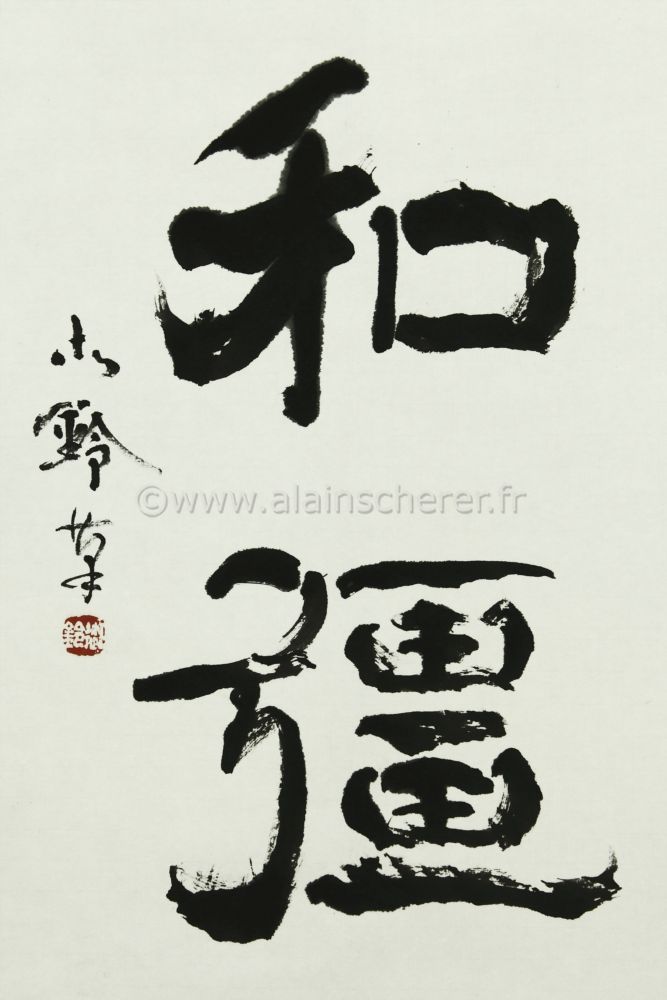 和
彊
小鈴草
©www.alainscherer.fr